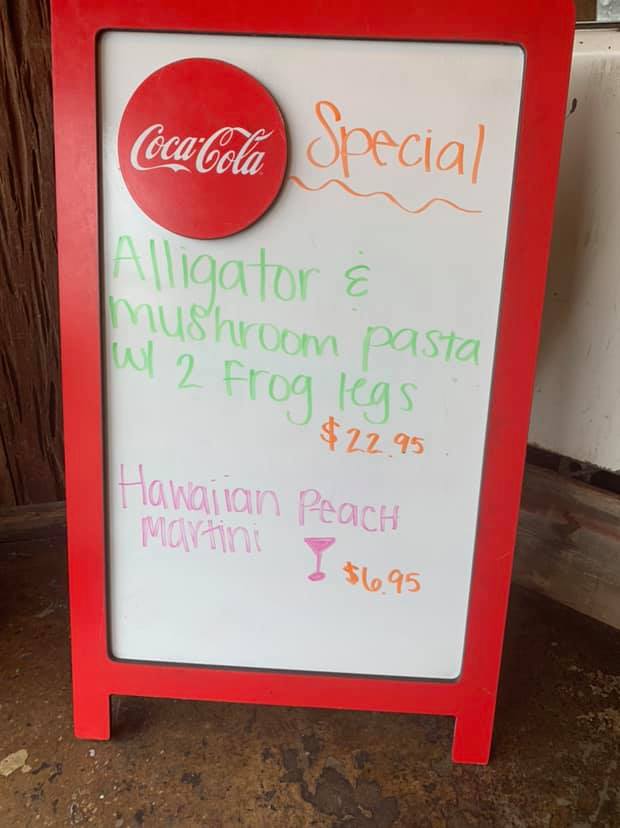 Coca-Cola
Special
Alligator &
mushroom pasta
w/ 2 Frog legs
$22.95
Hawaiian Peach
Martini
$6.95